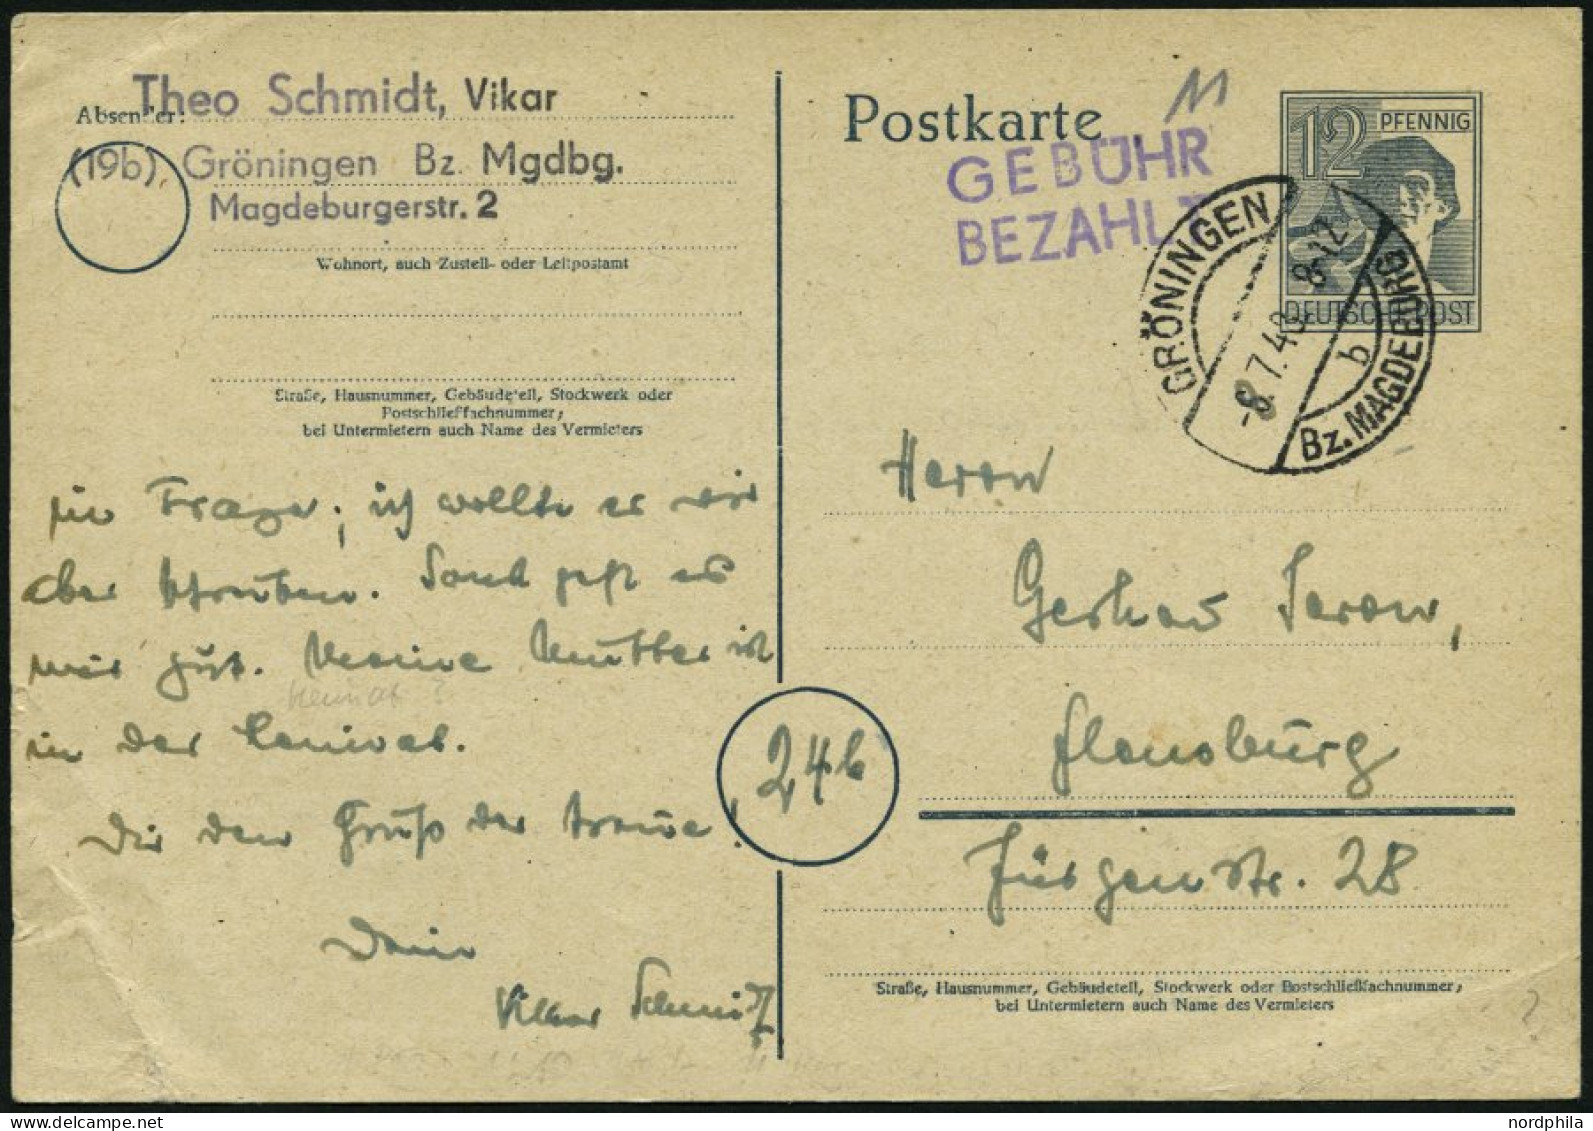 Theo Schmidt, Vikar
Absender:
(19b) Gröningen Bz. Mgdbg.
Magdeburgerstr. 2
Wohnort, auch Zustell- oder Leitpostamt
Straße, Hausnummer, Gebäudeteil, Stockwerk oder
Postschließfachnummer;
bei Untermietern auch Name des Vermieters
in Frage; ich wollte es wir
aber schreiben. Sonst geht es
mir gut. Meine Mutter ist
Heimat?
in der Heimat.
Dir den Gruß der Treue!
Dein
Vikar Schmidt
Postkarte
GEBÜHR
BEZAHLT
12 PFENNIG
DEUTSCHE POST
GRÖNINGEN
-8.7.48. 8-12
b
Bz. MAGDEBURG
Herrn
Gerhard Sarow,
24b
Flensburg
Jürgenstr. 28
Straße, Hausnummer, Gebäudeteil, Stockwerk oder Postschließfachnummer;
bei Untermietern auch Name des Vermieters
?
nordphila